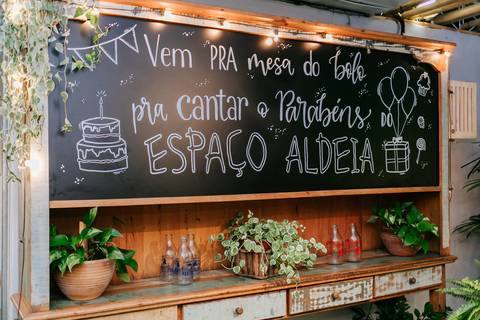 Vem PRA mesa do bolo
pra cantar o Parabéns DO
ESPAÇO ALDEIA